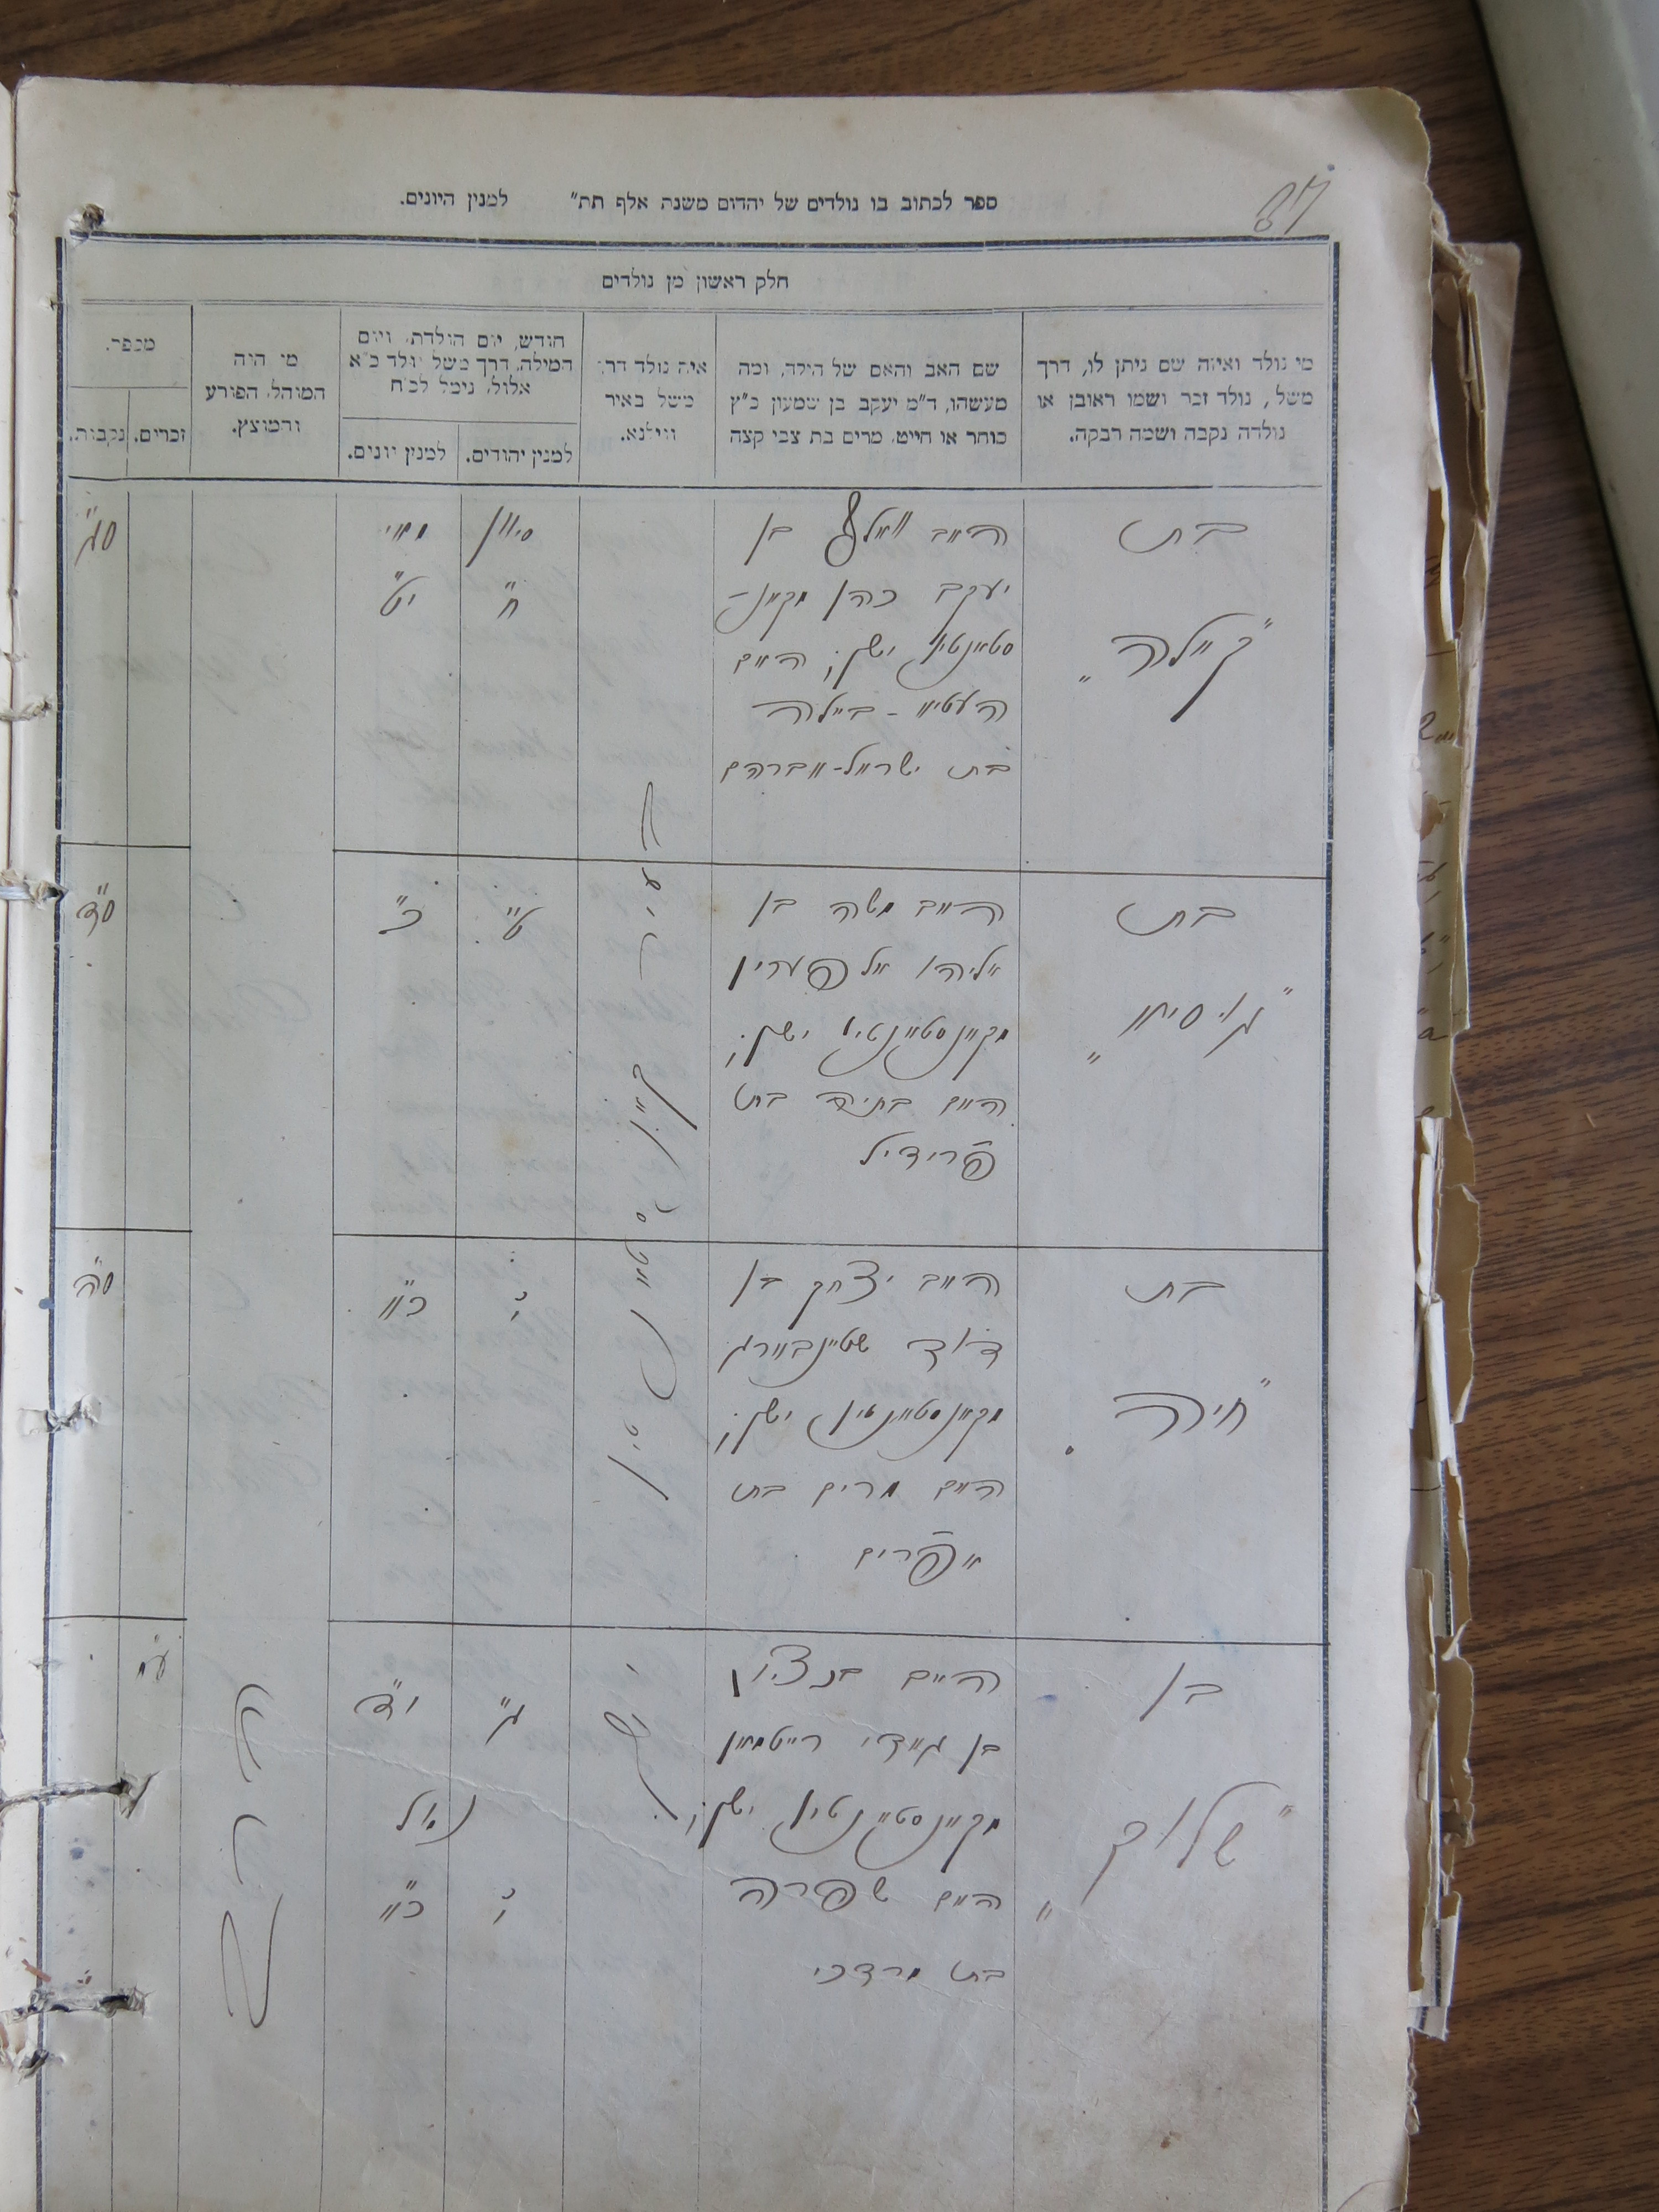 87
ספר לכתוב בו נולדים של יהדום משנת אלף תת״ למנין היונים.
חלק ראשון מן נולדים
מי נולד ואיזה שם ניתן לו, דרך
משל, נולד זכר ושמו ראובן או
נולדה נקבה ושמה רבקה.
שם האב והאם של הילד, ומה
מעשהו, ד״מ יעקב בן שמעון כ״ץ
סוחר או חייט. מרים בת צבי קצה
איה נולד דרך
משל באיר
ווילנא.
חודש, יום הולדת, ויום
המילה, דרך משל יולד כ״א
אלול, נימל לכ״ח
למנין יהודים.
למנין יונים.
מי היה
המוהל, הפורע
והמוצץ.
מספר.
זכרים.
נקבות.
בת
״קיילה״
האב וואלף בן
יעקב כהן מקאנ-
סטאנטין ישן; האם
העסיא - ביילה
בת ישראל-אברהם
סיון
ח״
מאי
יט״
סג״
בת
האב משה בן
אליהו אלפערין
מקאנסטאנטין ישן;
האם בתיה בת
פרידיל
ט״
כ״
סד״
בת
״חיה״
האב יצחק בן
דוד שטיינבוירג
מקאנסטאנטין ישן;
האם מרים בת
אפרים
י״
כ״א
סה״
בן
האב בנציון
בן רייטמאן
מקאנסטאנטין ישן;
האם שפרה
בת מרדכי
ג״
י״ד
נמול
י״
כ״א
העיר
קאנסטאנטין
ישן